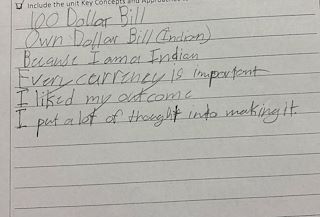 Include the unit Key Concepts and Approaches
100 Dollar Bill
Own Dollar Bill (Indian)
Because I am a Indian
Every currency is important
I liked my outcome
I put a lot of thought into making it.